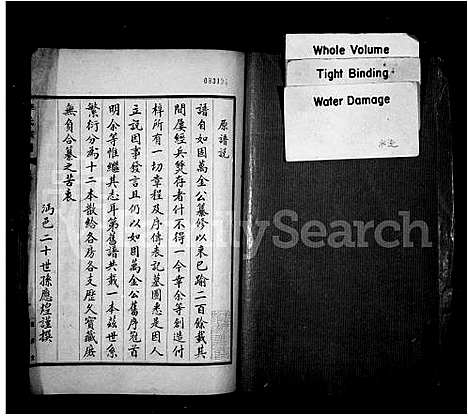 083192
原譜説
譜自如固萬金公纂修以來已踰二百餘載其
間屢經兵燹存者什不得一今幸余等創造付
梓所有一切章程及序傳表記墓圖悉是因人
立説因事發言且仍以如固萬金公舊序冠首
明余等惟繼其志耳弟舊譜共載一本兹世系
繁衍分為十二本散給各房各支歷久寶藏庶
無負合纂之苦衷
溈邑二十世孫應煌謹撰
Whole Volume
Tight Binding
Water Damage
水迹
FamilySearch